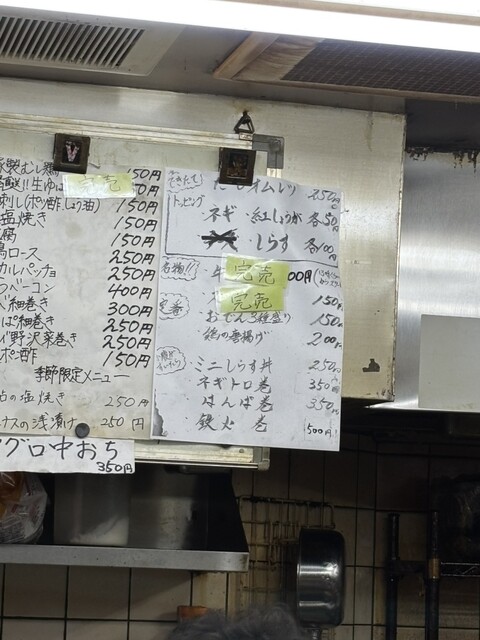 製むし鶏 150円
完売
刺し(ポン酢しょう油) 150円
塩焼き 150円
150円
ロース 250円
カルパッチョ 250円
ベーコン 400円
細巻き 300円
ぱ細巻き 250円
野沢菜巻き 250円
ポン酢 150円
季節限定メニュー
の塩焼き 250円
ナスの浅漬け 250円
グロ中おち
350円
だしオムレツ 250円
トッピング
・ネギ ・紅しょうが 各50円
・しらす 各100円
名物!!
完売 00円
定番
完売 150円
おでん3種盛り 150円
鶏の唐揚げ 200円
・ミニしらす丼 250円
ネギトロ巻 350円
はんぱ巻 350円
鉄火巻 500円